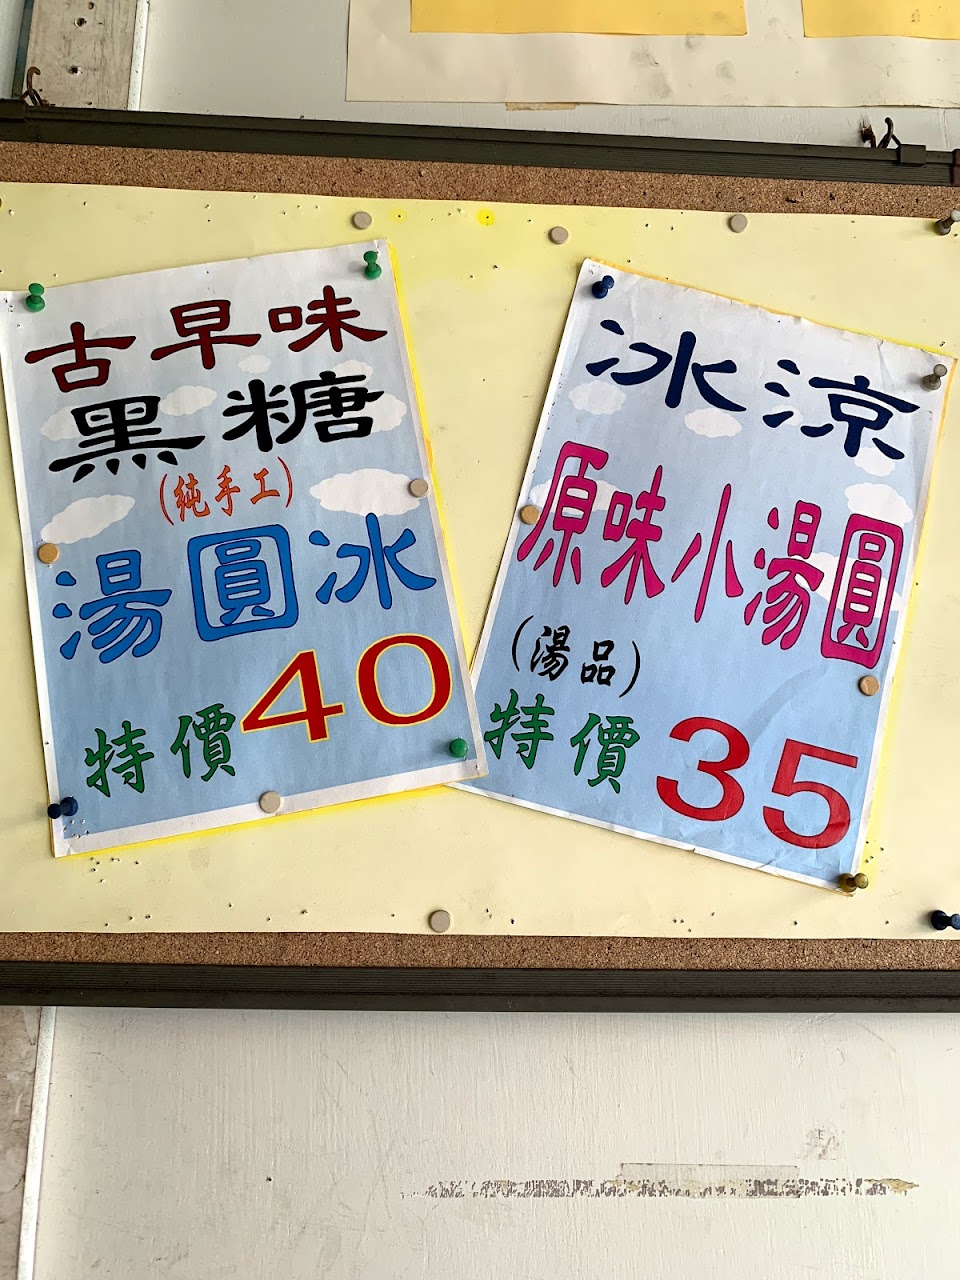 古早味
黑糖
(純手工)
湯圓冰
特價40
冰涼
原味小湯圓
(湯品)
特價35